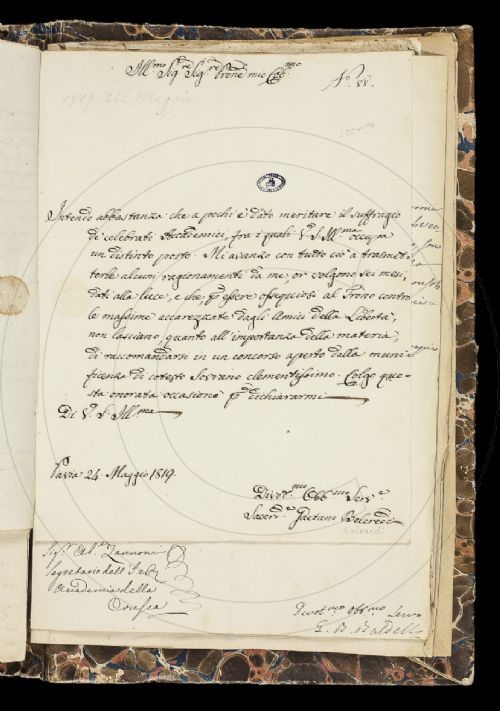 Ill.mo Sig.re Sig.re Prone mio Obb.mo
N.° 88.
1819. 24. Maggio
Intendo abbastanza che a pochi è dato meritare il suffragio
di celebrati Accademici, fra i quali V.S. Ill.ma occupa
un distinto posto. Mi avanzo con tutto ciò a trasmet=
terle alcuni ragionamenti da me, or volgono sei mesi,
dati alla luce, e che per essere ossequiosi al Trono contro
le massime accarezzate dagli Amici della Libertà,
non lasciano, quanto all'importanza della materia,
di raccomandarsi in un concorso aperto dalla muni
ficenza di cotesto Sovrano clementissimo. Colgo que=
sta onorata occasione per dichiararmi
Di V.S. Ill.ma
Pavia 24. Maggio 1819.
Divot.mo Obb.mo Serv.e
Sacerd.e Gaetano Belcredi
Belcredi
Sig.r Ab. Zannoni
Segretario dell'I. e R.
Accademia della
Crusca
Devot.mo obb.mo Servo
G. B. Baldelli